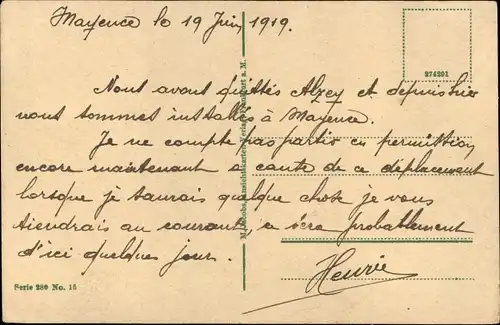 Mayence le 19 Juin 1919.
274201
Nous avons quittés Alzey et depuis hier
nous sommes installés à Mayence.
Je ne compte pas partir en permission
encore maintenant a cause de ce déplacement
lorsque je saurais quelque chose je vous
tiendrais au courant, ce sera probablement
d'ici quelques jours.
Henrie
Serie 280 No. 15